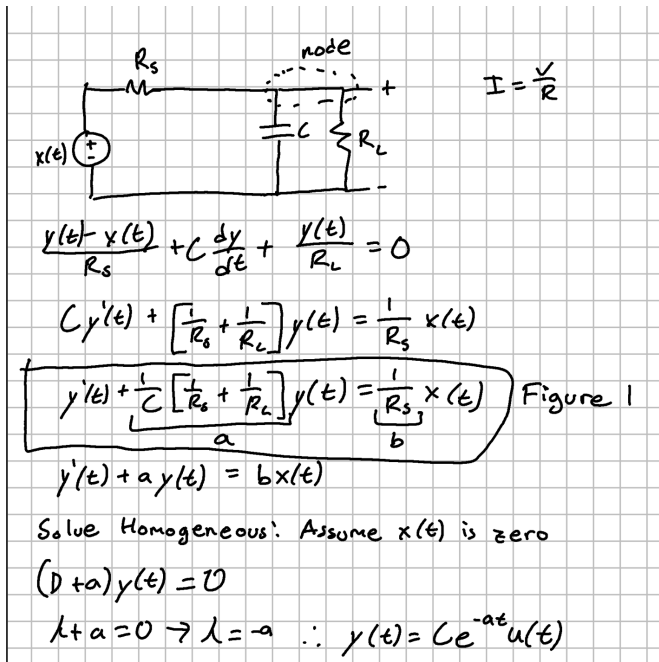 node
R_s
I = V/R
+
x(t) + -
C
R_L
-
(y(t) - x(t))/R_s + C dy/dt + y(t)/R_L = 0
Cy'(t) + [1/R_s + 1/R_L] y(t) = 1/R_s x(t)
y'(t) + 1/C [1/R_s + 1/R_L] y(t) = 1/R_s x(t) Figure 1
a b
y'(t) + a y(t) = bx(t)
Solve Homogeneous: Assume x(t) is zero
(D + a) y(t) = 0
λ + a = 0 → λ = -a ∴ y(t) = Ce^{-at} u(t)